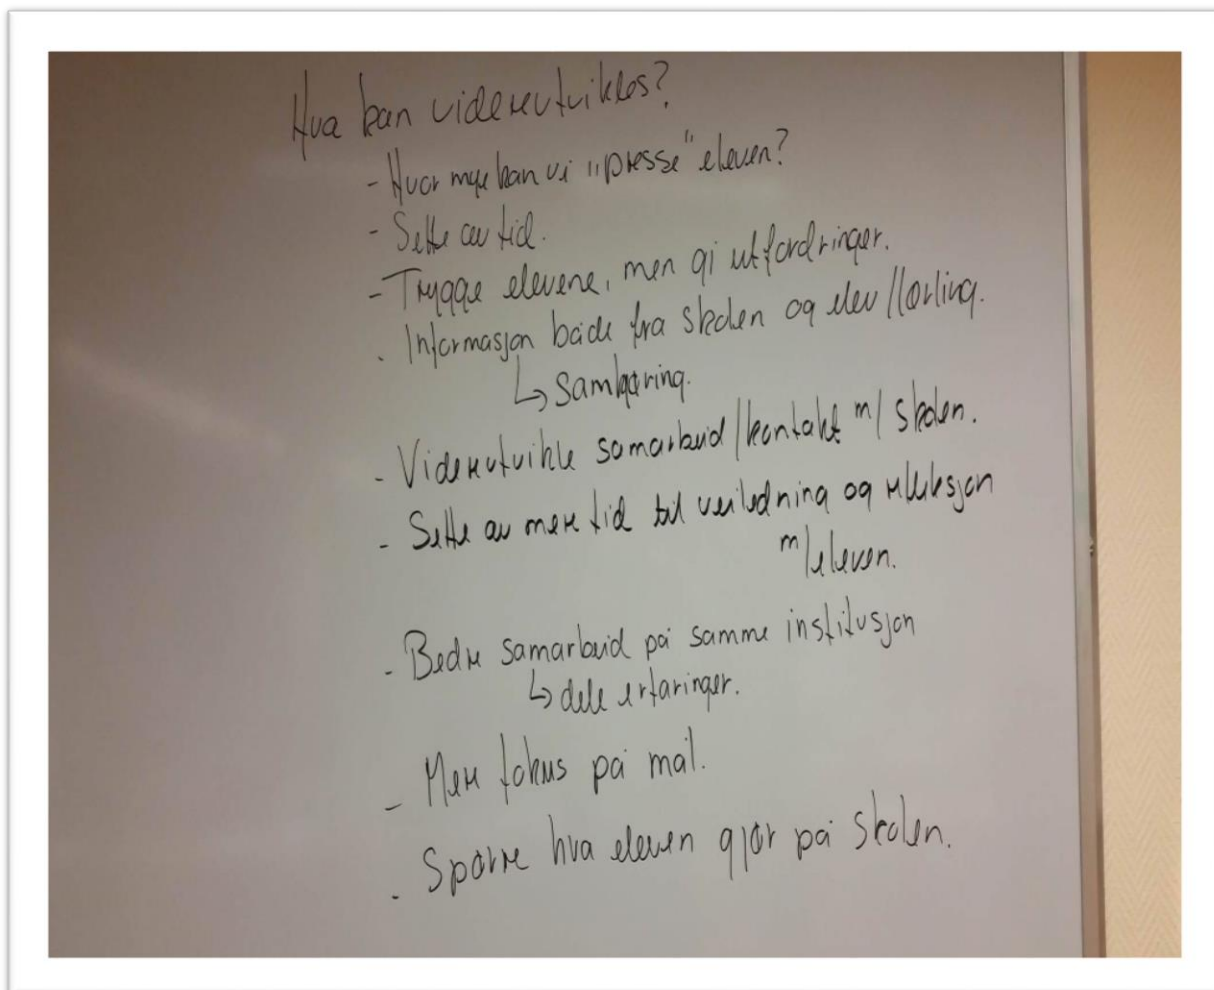 Hva kan videreutvikles?
- Hvor mye kan vi "presse" eleven?
- Sette av tid.
- Trygge elevene, men gi utfordringer.
- Informasjon både fra skolen og elev/lærling.
↳ Samkjøring.
- Videreutvikle samarbeid/kontakt m/ skolen.
- Sette av mere tid til veiledning og refleksjon
m/eleven.
- Bedre samarbeid på samme institusjon
↳ dele erfaringer.
- Mere fokus på mål.
- Spørre hva eleven gjør på skolen.